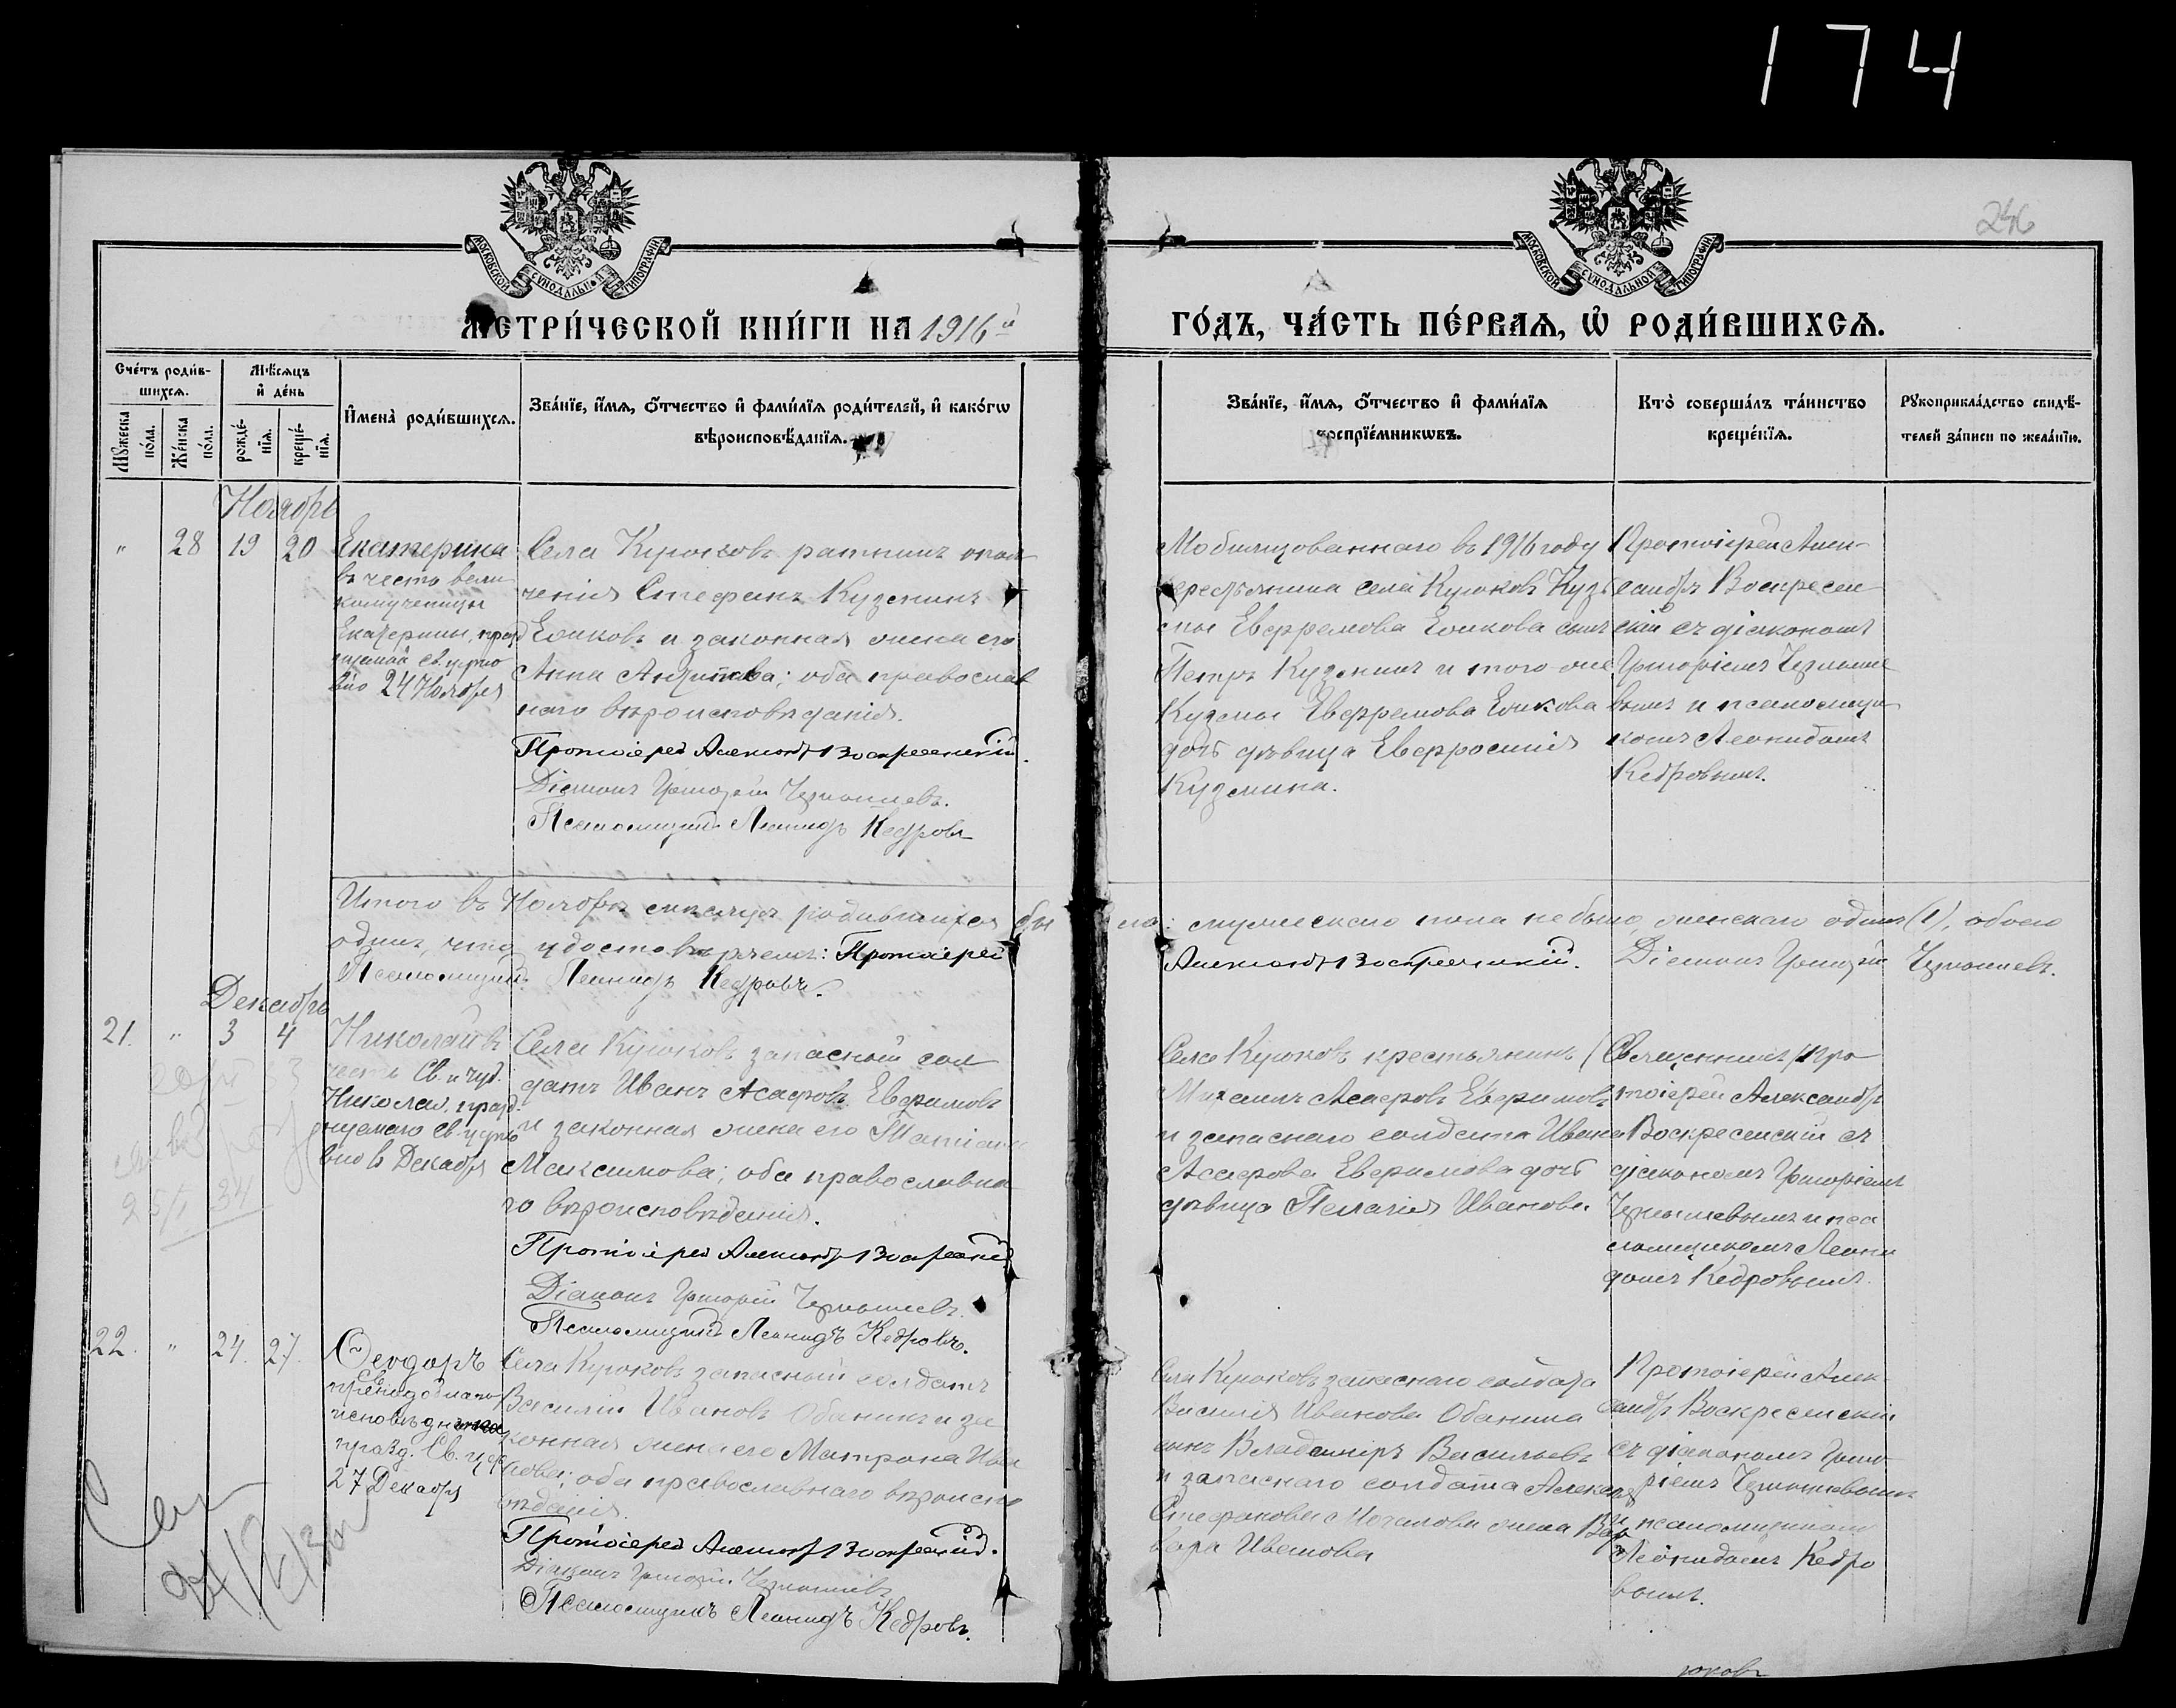 174
МОСКОВСКОЙ СѴНОДАЛЬНОЙ ТИПОГРАФІИ
МОСКОВСКОЙ СѴНОДАЛЬНОЙ ТИПОГРАФІИ
246
МЕТРИ́ЧЕСКОЙ КНИ́ГИ НА 1916й
ГО́ДЪ, ЧА́СТЬ ПЕ́РВАѦ, Ѡ҆ РОДИ́ВШИХСѦ.
Сче́тъ роди́в-
шихсѧ.
Мѣ́сѧцъ
и҆ де́нь
Мꙋ́жеска по́ла.
Же́нска по́ла.
рожде́-нїѧ.
креще́-нїѧ.
И҆мена̀ роди́вшихсѧ.
Зва́нїе, и҆́мѧ, ѻ҆́тчество и҆ фами́лїѧ роди́телей, и҆ како́гѡ
вѣроисповѣ́данїѧ.
Зва́нїе, и҆́мѧ, ѻ҆́тчество и҆ фами́лїѧ
воспрїе́мникѡвъ.
Кто̀ соверша́лъ та́инство
креще́нїѧ.
Рꙋкоприкла́дство свидѣ́-
телей за́писи по жела́нїю.
Ноябрь
" 28 19 20
Екатерина
въ честь вели
комученицы
Екатерины, празд
нуемой св. церко
вію 24 Ноября
Села Курюковъ ратникъ опол
ченія Стефанъ Кузминъ
Ежиковъ и законная жена его
Анна; оба православ
наго вѣроисповѣданія.
Протоіерей Александръ Воскресенскій.
Діаконъ Григорій Чернышевъ.
Псаломщикъ Леонидъ Кедровъ
Мобилизованнаго въ 1916 году
крестьянина села Курюковъ Кузь
мы Евфремова Ежикова сынъ
Петръ Кузминъ и того же
Кузмы Евфремова Ежикова
дочь дѣвица Евфросинія
Кузмина.
Протоіерей Алек-
сандръ Воскресен
скій съ діакономъ
Григоріемъ Черныше
вымъ и псаломщи
комъ Леонидомъ
Кедровымъ.
Итого въ Ноябрѣ мѣсяцѣ родившихся бы ло: мужескаго пола не было, женскаго одинъ (1), обоего
одинъ, что удостовѣряемъ: Протоіерей Александръ Воскресенскій. Діаконъ Григорій Чернышевъ.
Псаломщикъ Леонидъ Кедровъ.
Декабрь
21. " 3 4
Николай въ
честь Св. и чуд.
Николая, празд
нуемаго Св. церко
вію 6 Декабря
Села Курюковъ запасный сол
датъ Иванъ Асафовъ Евфимовъ
и законная жена его Татіана
Максимова; оба православна
го вѣроисповѣданія.
Протоіерей Александръ Воскресенскій
Діаконъ Григорій Чернышевъ.
Псаломщикъ Леонидъ Кедровъ.
Села Курюковъ крестьянинъ
Михаилъ Асафовъ Евфимовъ
и запаснаго солдата Ивана
Асафова Евфимова дочь
дѣвица Пелагія Иванова
Священникъ/Про
тоіерей Александръ
Воскресенскій съ
діакономъ Григоріемъ
Чернышевымъ и пса
ломщикомъ Леони
домъ Кедровымъ.
25/I 34
22. " 24. 27.
Ѳеодоръ
исповѣдника
празд. Св. цер
27 Декабря
Села Курюковъ запасный солдатъ
Василій Ивановъ Обанинъ и за
конная жена его Матрона Ива
нова; оба православнаго вѣроиспо
вѣданія.
Протоіерей Александръ Воскресенскій.
Діаконъ Григорій Чернышевъ
Псаломщикъ Леонидъ Кедровъ.
Села Курюковъ запаснаго солдата
Василія Иванова Обанина
сынъ Владиміръ Васильевъ
и запаснаго солдата Александра
Стефанова жена Вар
вара Иванова
Протоіерей Алек-
сандръ Воскресенскій
съ діакономъ Григо
ріемъ Чернышевымъ
и псаломщикомъ
Леонидомъ Кедро
вымъ.